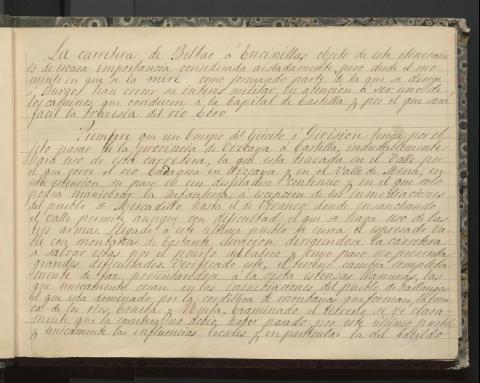 La carretera de Bilbao a Encinillas objeto de este itinerario
es de escasa importancia considerada aisladamente, pero desde el mo-
mento en que se la mire como formando parte de la que se dirige
a Burgos hace crecer su interés militar en atención a ser uno de
los caminos que conducen a la Capital de Castilla y por el que será
fácil la travesía del río Ebro.
Siempre que un Cuerpo de Ejército o División tenga por ob-
jeto pasar de la provincia de Vizcaya a Castilla, indudablemente
hará uso de esta carretera, la que está trazada en el valle por
el que corre el río Cadagua en Vizcaya y en el valle de Mena, en
su extensión su paso es un desfiladero continuo y en el que solo
podrá maniobrar la Infantería a excepción de las inmediaciones
del pueblo de Mercadillo hasta el de donde ensanchando
el valle permite aunque con dificultad el que se haga uso de las
tres armas. Llegado a este último pueblo se cierra el espresado va-
lle con montañas de bastante elevación dirigiéndose la carretera
a salvar estas por el puerto del Cabrio cuyo paso no presenta
grandes dificultades. Verificado este, el terreno cambia completa-
mente de faz, presentándose a la vista estensas llanuras, las
que únicamente cesan en las inmediaciones del pueblo de
el que está dominado por la cordillera de montañas que forman la cuen-
ca de los ríos Trueba y Nela. Examinado el terreno se ve clara-
mente que la carretera no debió haber pasado por este último pueblo
y únicamente las influencias locales y en particular la del Cabildo